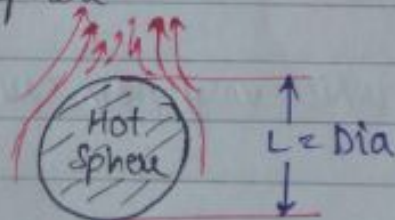 Hot
Sphere
L = Dia